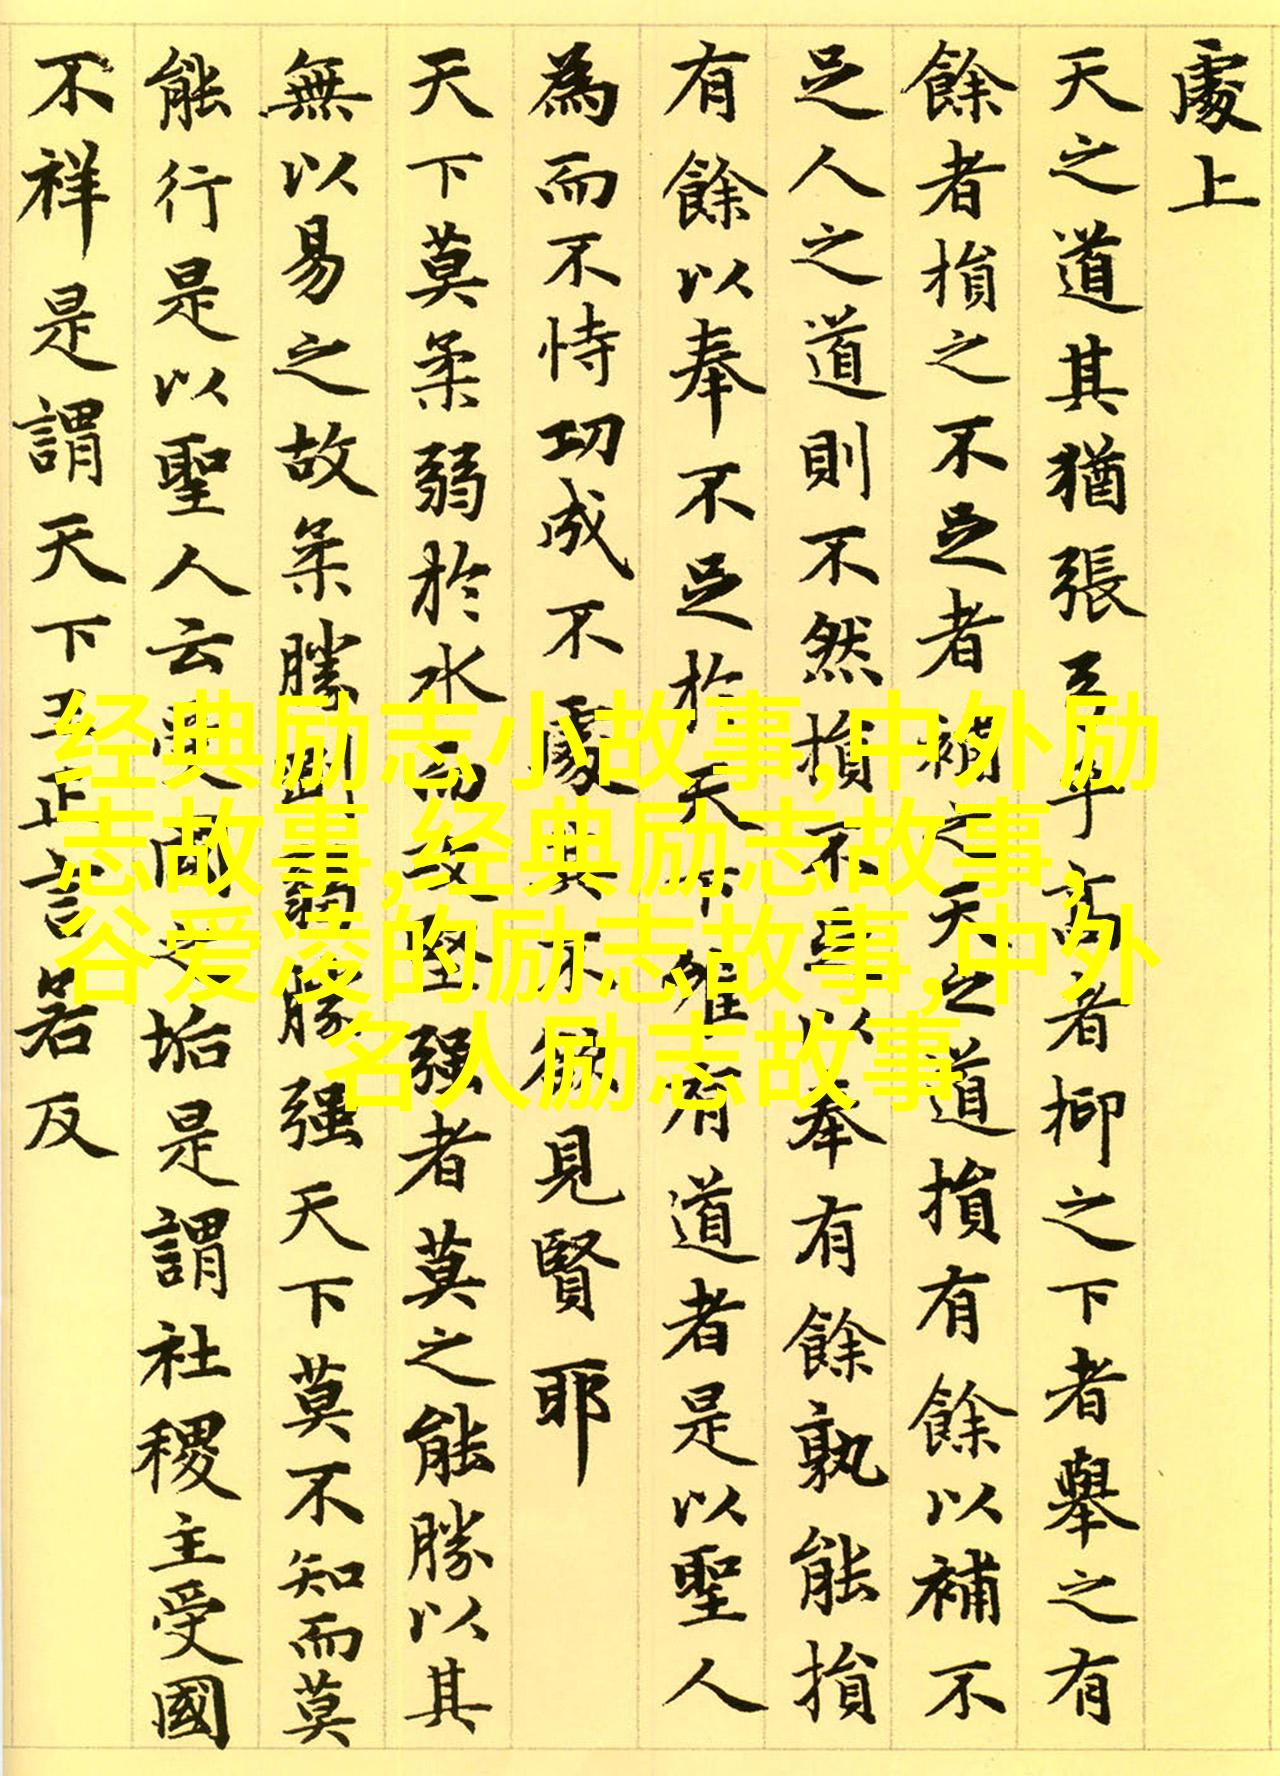 處上
天之道其猶張弓乎高者抑之下者舉之有
餘者損之不足者補之天之道損有餘以補不
足人之道則不然損不足以奉有餘孰能損
有餘以奉不足於天下唯有道者是以聖人
為而不恃功成不處其不欲見賢耶
天下莫柔弱於水而攻堅强者莫之能勝以其
無以易之故柔勝剛弱勝强天下莫不知而莫
能行是以聖人云受國之垢是謂社稷主受國
不祥是謂天下王正言若反
经典励志小故事,中外励
志故事,经典励志故事,
谷爱凌的励志故事,中外
名人励志故事